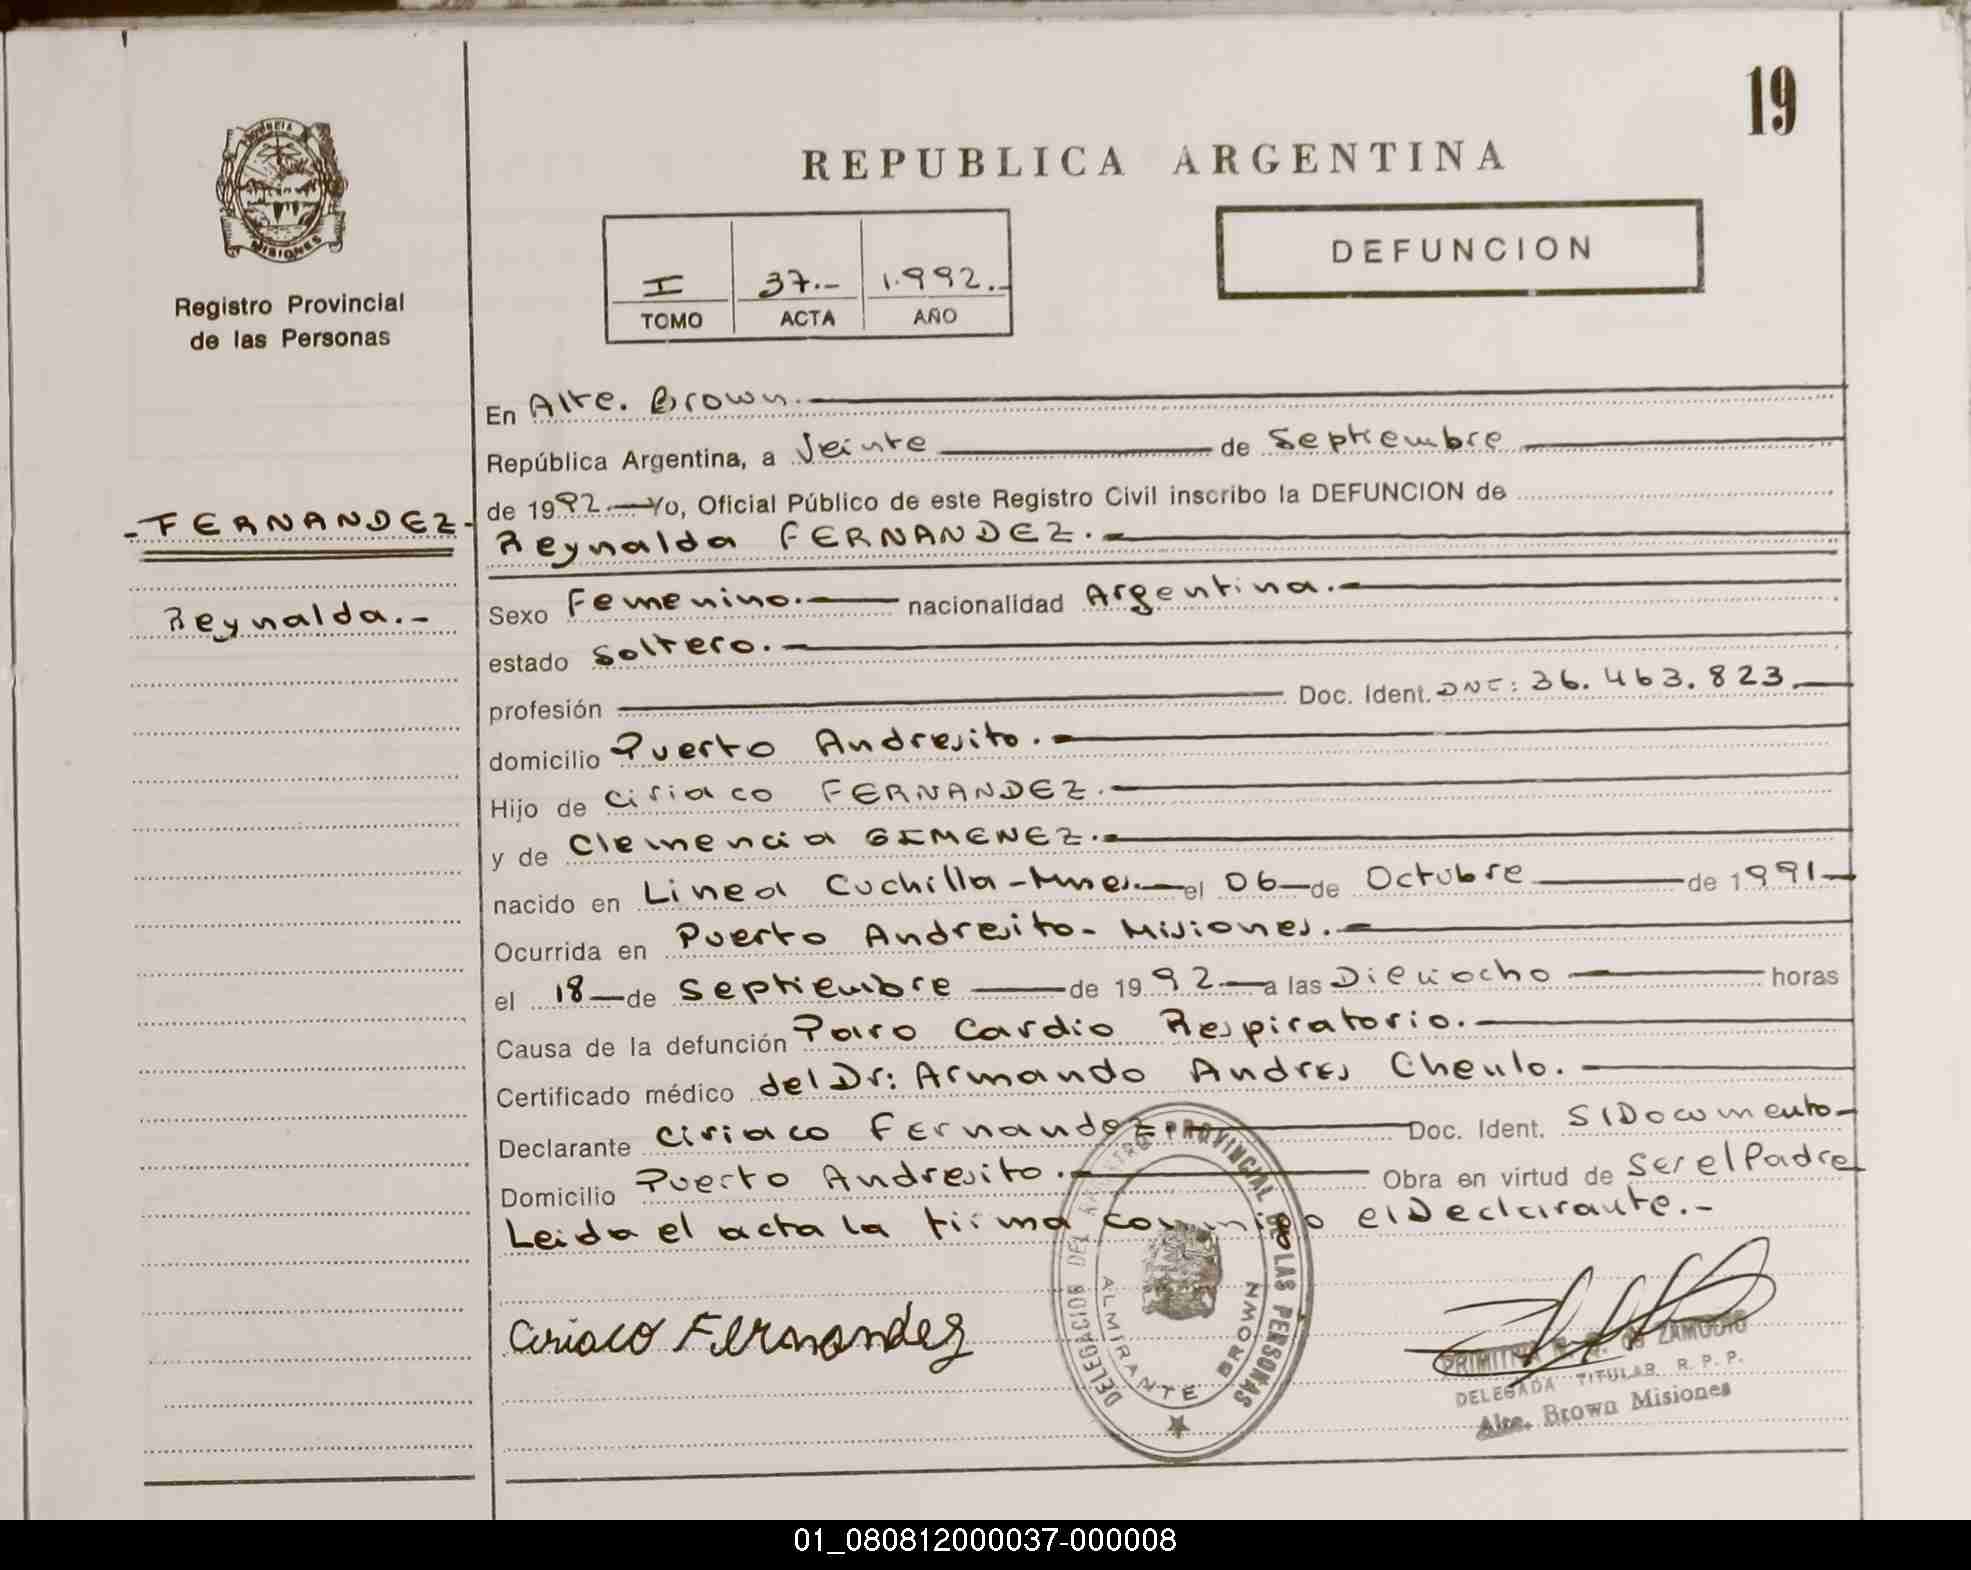 19
PROVINCIA
MISIONES
Registro Provincial
de las Personas
REPUBLICA ARGENTINA
I 37.- 1.992.-
TOMO ACTA AÑO
DEFUNCION
En Alte. Brown.
República Argentina, a Veinte de Septiembre
de 1992 Yo, Oficial Público de este Registro Civil inscribo la DEFUNCION de
- FERNANDEZ -
Reynalda FERNANDEZ.
Reynalda.-
Sexo Femenino. nacionalidad Argentina.
estado Soltero.
profesión Doc. Ident. DNI: 36.463.823.
domicilio Puerto Andresito.
Hijo de Ciriaco FERNANDEZ.
y de Clemencia GIMENEZ.
nacido en Linea Cuchilla-Mnes. el 06 de Octubre de 1991
Ocurrida en Puerto Andresito- Misiones.
el 18 de Septiembre de 1992 a las Dieciocho horas
Causa de la defunción Paro Cardio Respiratorio.
Certificado médico del Dr: Armando Andres Cheulo.
Declarante Ciriaco Fernandez Doc. Ident. S/Documento-
Domicilio Puerto Andresito. Obra en virtud de Ser el Padre
Leida el acta la firma conmigo el Declarante.-
Ciriaco Fernandez
DELEGACION DEL REGISTRO PROVINCIAL DE LAS PERSONAS
ALMIRANTE BROWN
PRIMITIVA DE ZAMUDIO
DELEGADA TITULAR R. P. P.
Alte. Brown Misiones
01_080812000037-000008